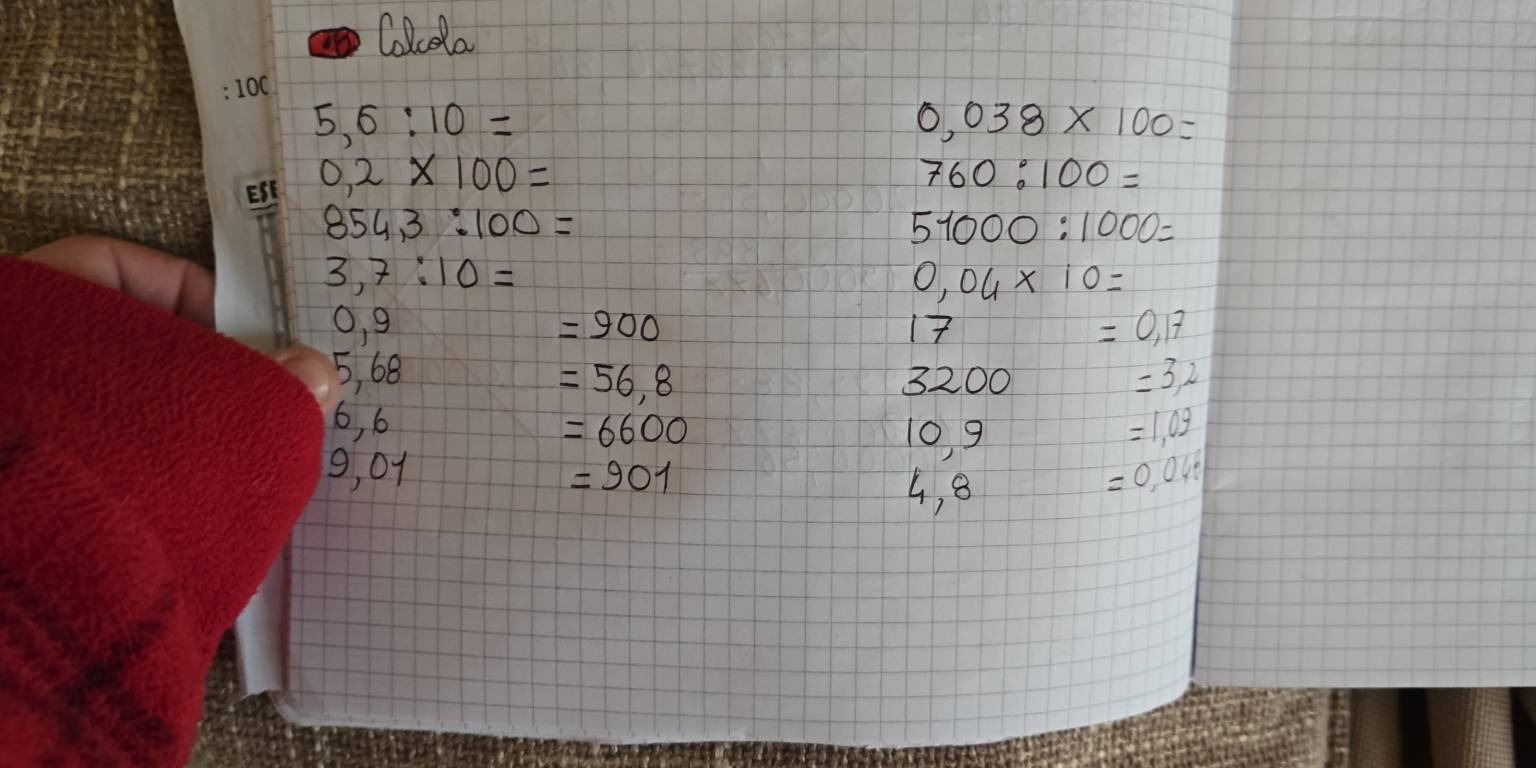 Calcola
: 100
5,6 : 10 =
0,2 × 100 =
854,3 : 100 =
3,7 : 10 =
0,9 = 900
5,68 = 56,8
6,6 = 6600
9,01 = 901
0,038 × 100 =
760 : 100 =
51000 : 1000 =
0,04 × 10 =
17 = 0,17
3200 = 3,2
10,9 = 1,09
4,8 = 0,048